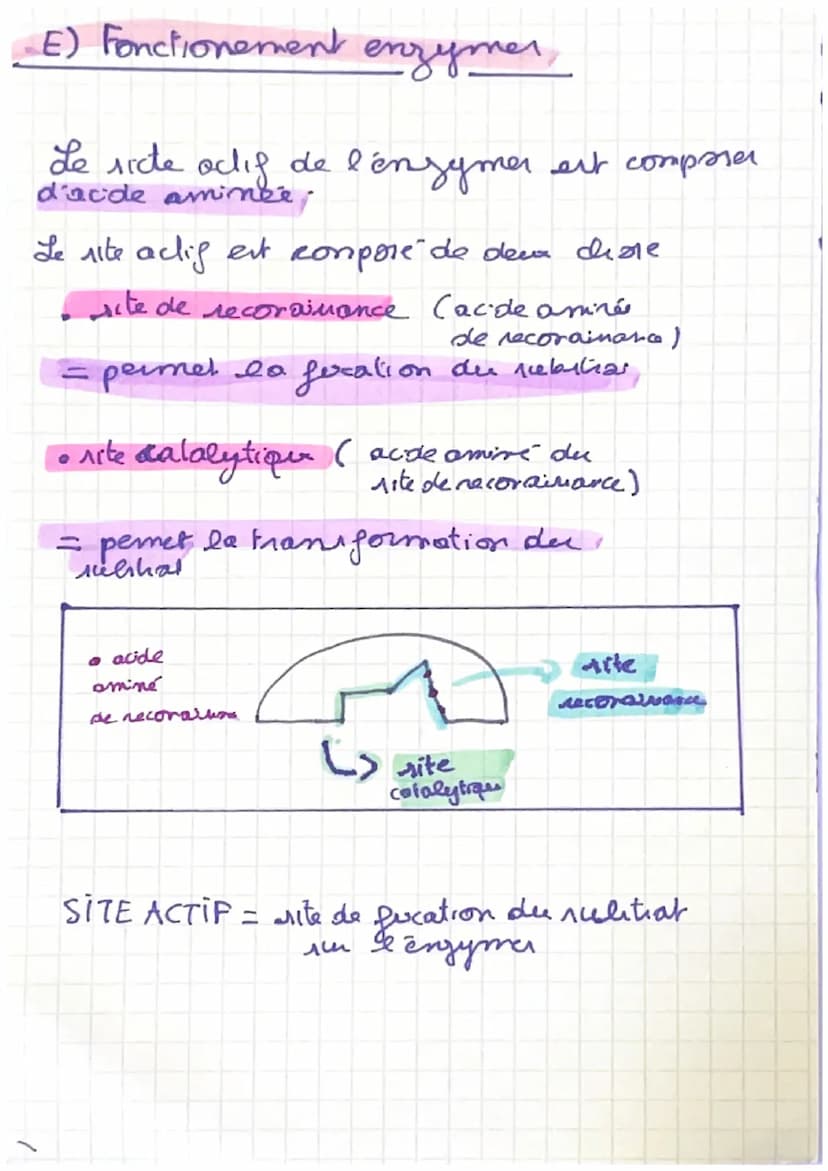 E) Fonctionement enzymes
Le sicte actif de l'enzymes est composer
d'acide aminée.
Le site actif est composé de deux chose
• site de reconaissance (acide aminés
de reconainance)
= permet la fixation du substrat
• site catalytique ( acide aminé du
site de reconaissance)
= permet la transformation du
substrat
• acide
aminé
de reconaissance
site
reconaissance
site
catalytique
SITE ACTIF = site de fixation du substrat
sur l'enzymes